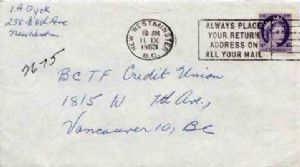 I.A Dyck
258-E 8th Ave
New Westmin
NEW WESTMINSTER
PM
11 IX
1963
B.C.
ALWAYS PLACE
YOUR RETURN
ADDRESS ON
ALL YOUR MAIL
2675
BCTF Credit Union
1815 W 7th Ave,
Vancouver 10, BC